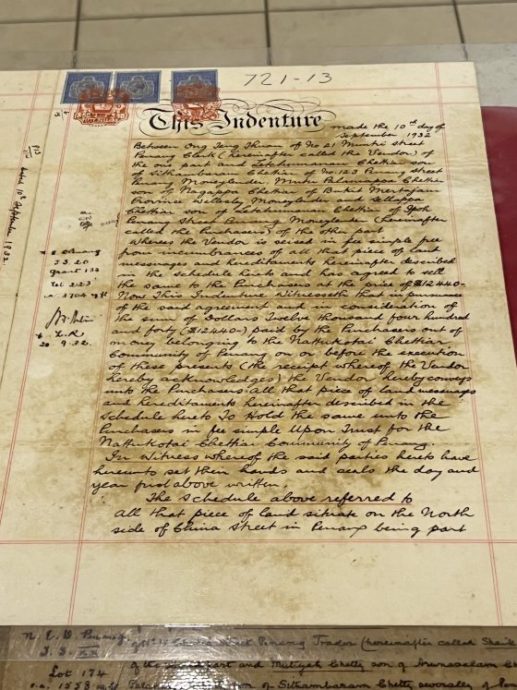 721-13
This Indenture made the 10th day of
September 1932
Between Ong Teng of No 21 Muntri Street
Penang Clerk (hereinafter called the Vendor) of
the one part and Letchumanan Chettiar son
of Sithambaram Chettiar of No 123 Penang Street
Penang Moneylender, Muthu Palaniappa Chettiar
son of Nagappa Chettiar of Bukit Mertajam
Province Wellesly Moneylender and
Chettiar son of Letchumanan Chettiar of
Penang Street Penang Moneylender (hereinafter
called the Purchasers) of the other part
Whereas the Vendor is seised in fee simple free
from incumbrances of all that piece of land
messuages and hereditaments hereinafter described
in the schedule hereto and has agreed to sell
the same to the Purchasers at the price of $12440-
Now This Indenture Witnesseth that in pursuance
of the said agreement and in consideration of
the sum of Dollars Twelve thousand four hundred
and forty ($12440-) paid by the Purchasers out of
money belonging to the Nattukotai Chettiar
Community of Penang on or before the execution
of these presents (the receipt whereof the Vendor
hereby acknowledges) the Vendor hereby conveys
unto the Purchasers all that piece of land messuages
and hereditaments hereinafter described in the
schedule hereto To Hold the same unto the
Purchasers in fee simple Upon Trust for the
Nattukotai Chettiar Community of Penang.
In Witness whereof the said parties hereto have
hereunto set their hands and seals the day and
year first above written.
The Schedule above referred to
All that piece of land situate on the North
side of China Street in Penang being part
dated 10th September 1932.
T.S. 20
Grant 132
20 9.32.
N. E. D. Penang
T.S. XX
Lot 174
Penang Trader (hereinafter called
of the part and Chetty son of Arunasalam
son of Sithambaram Chetty